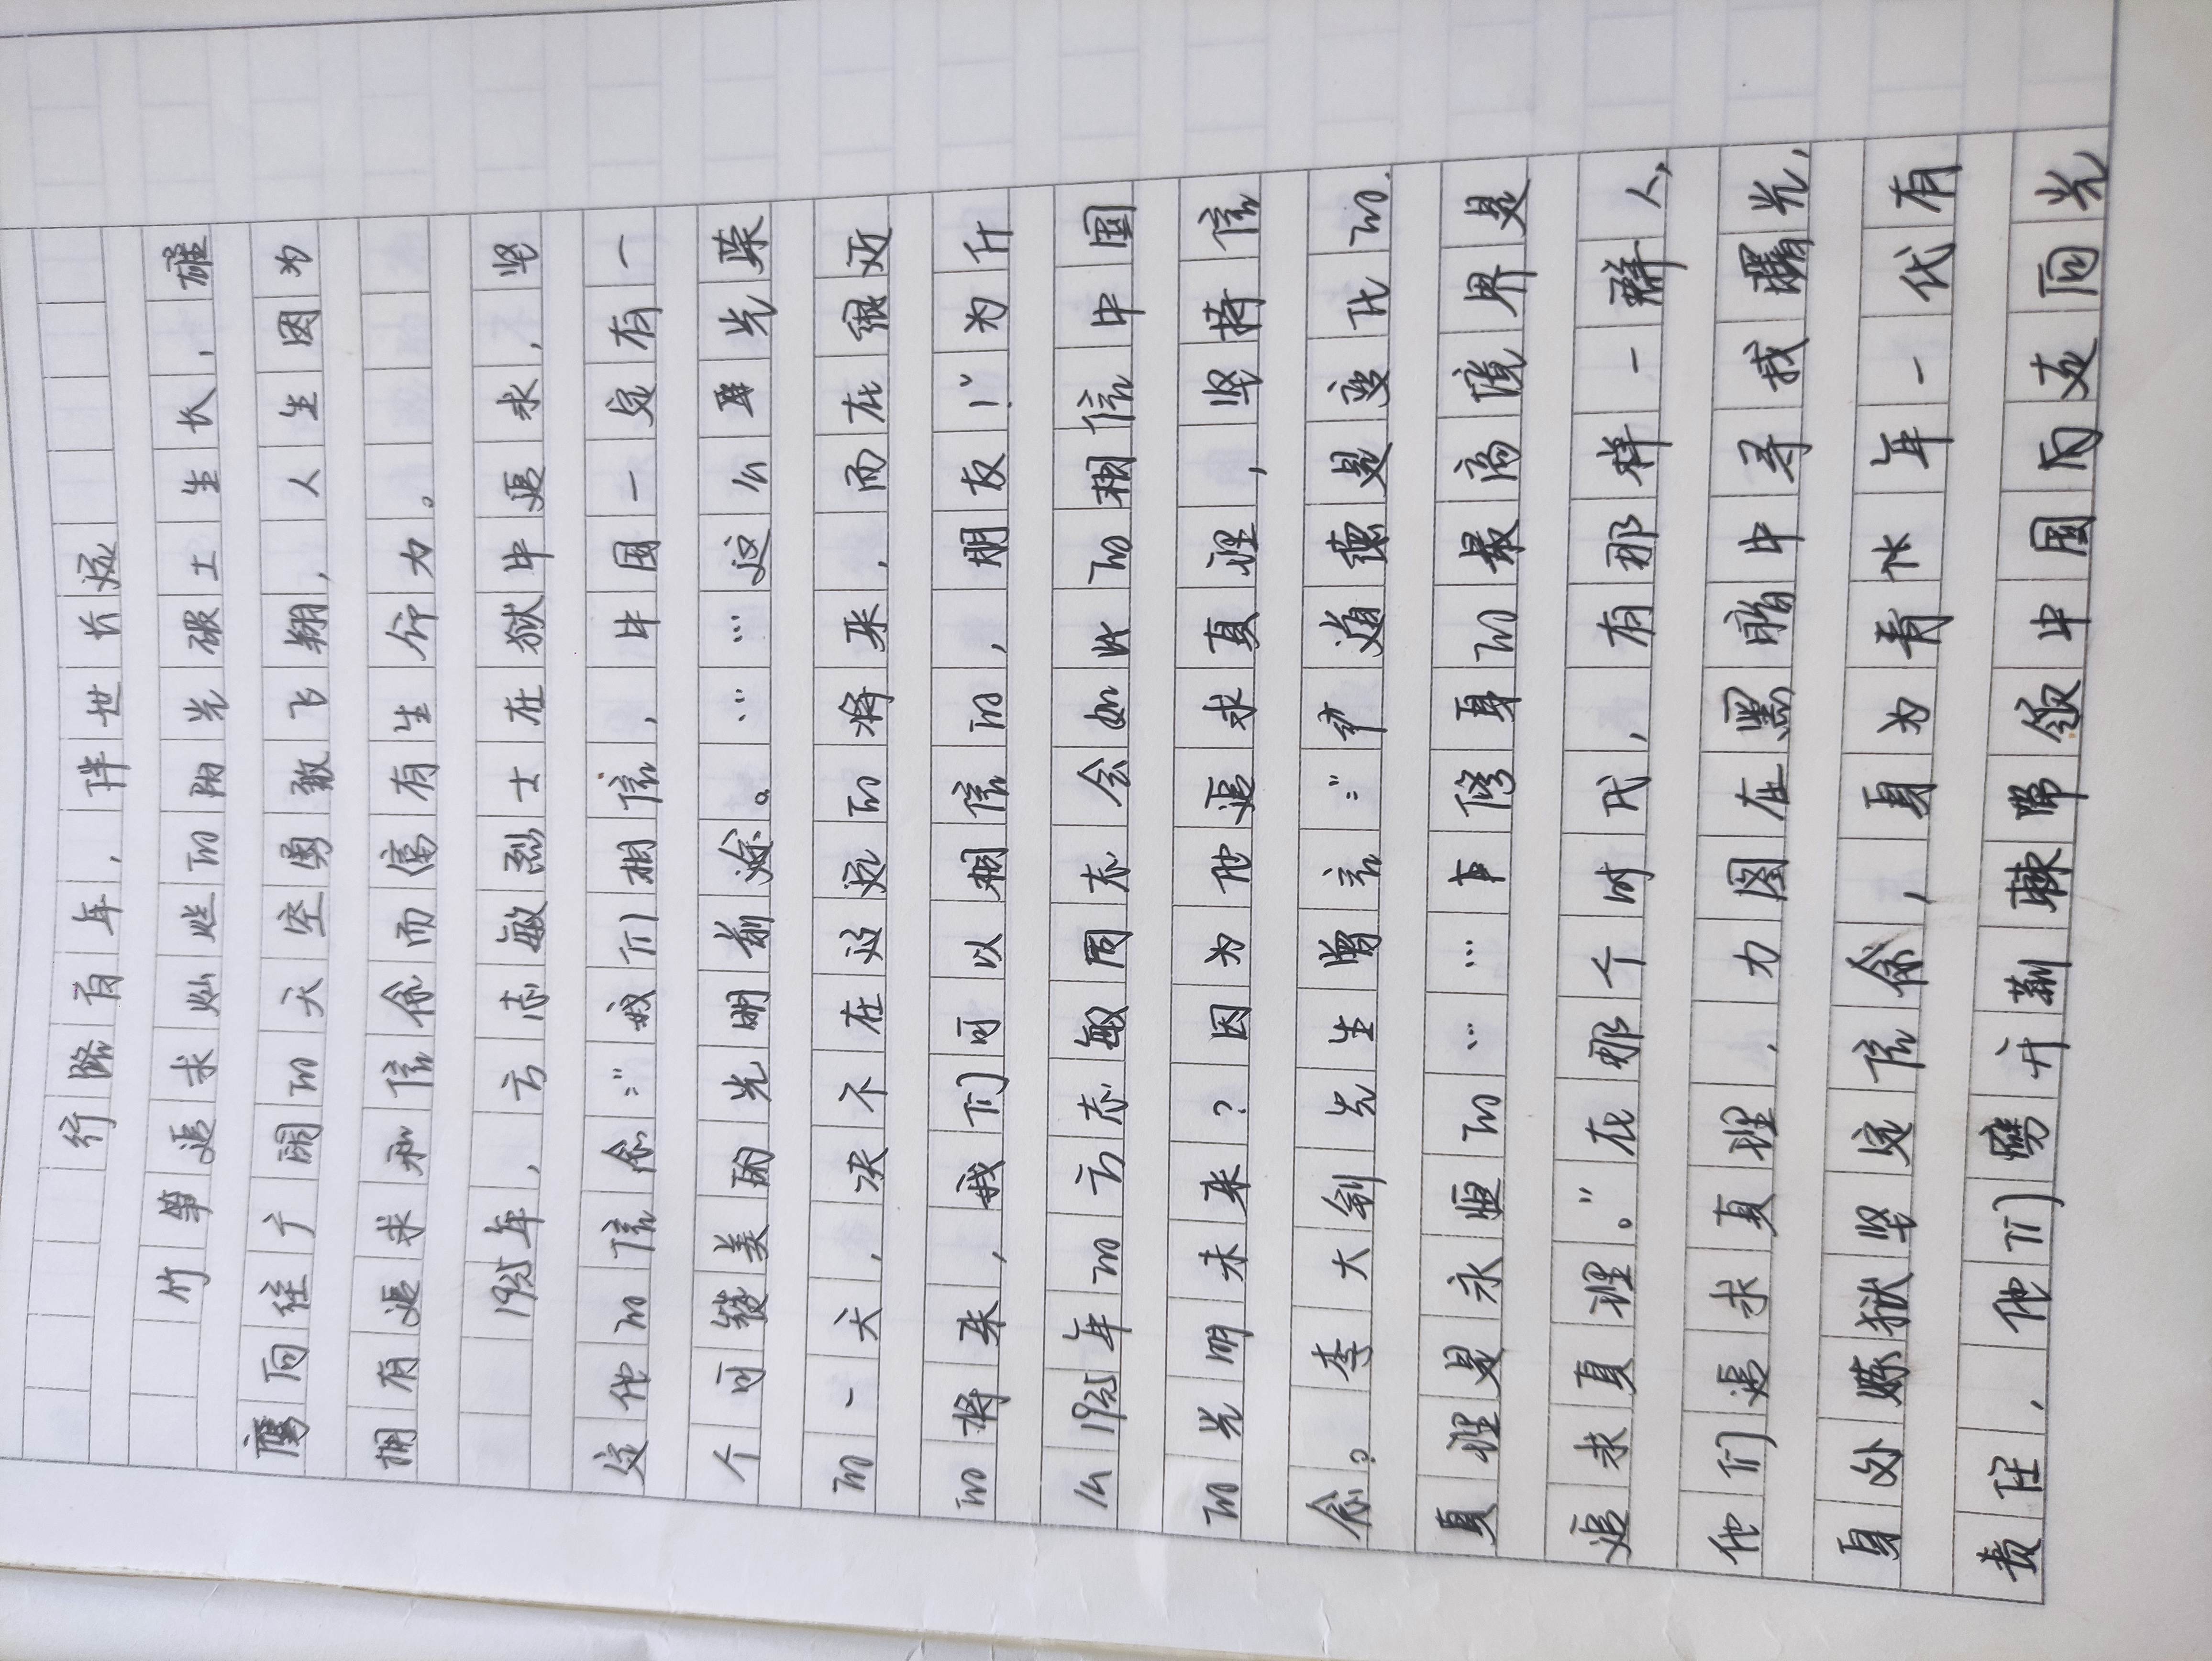 行路百年，伴世长流
竹笋追求灿烂的阳光破土生长，雄
鹰向往广阔的天空勇敢飞翔，人生因为
拥有追求和信念而倍有生命力。
1935年，方志敏烈士在狱中追求，坚
定他的信念："我们相信，中国一定有一
个可赞美的光明前途。……这么光荣
的一天，决不在辽远的将来，而在很近
的将来，我们可以相信的，朋友！"为什
么1935年的方志敏同志会如此的相信中国
的光明未来？因为他追求真理，坚持信
念。李大钊先生曾言："道德是变化的，
真理是永恒的……事修身的最高境界是
追求真理。"在那个时代，有那样一群人，
他们追求真理，力图在黑暗中寻找曙光，
身处炼狱坚定信念，身为青年一代有
责任，他们劈开荆棘带领中国向走向光